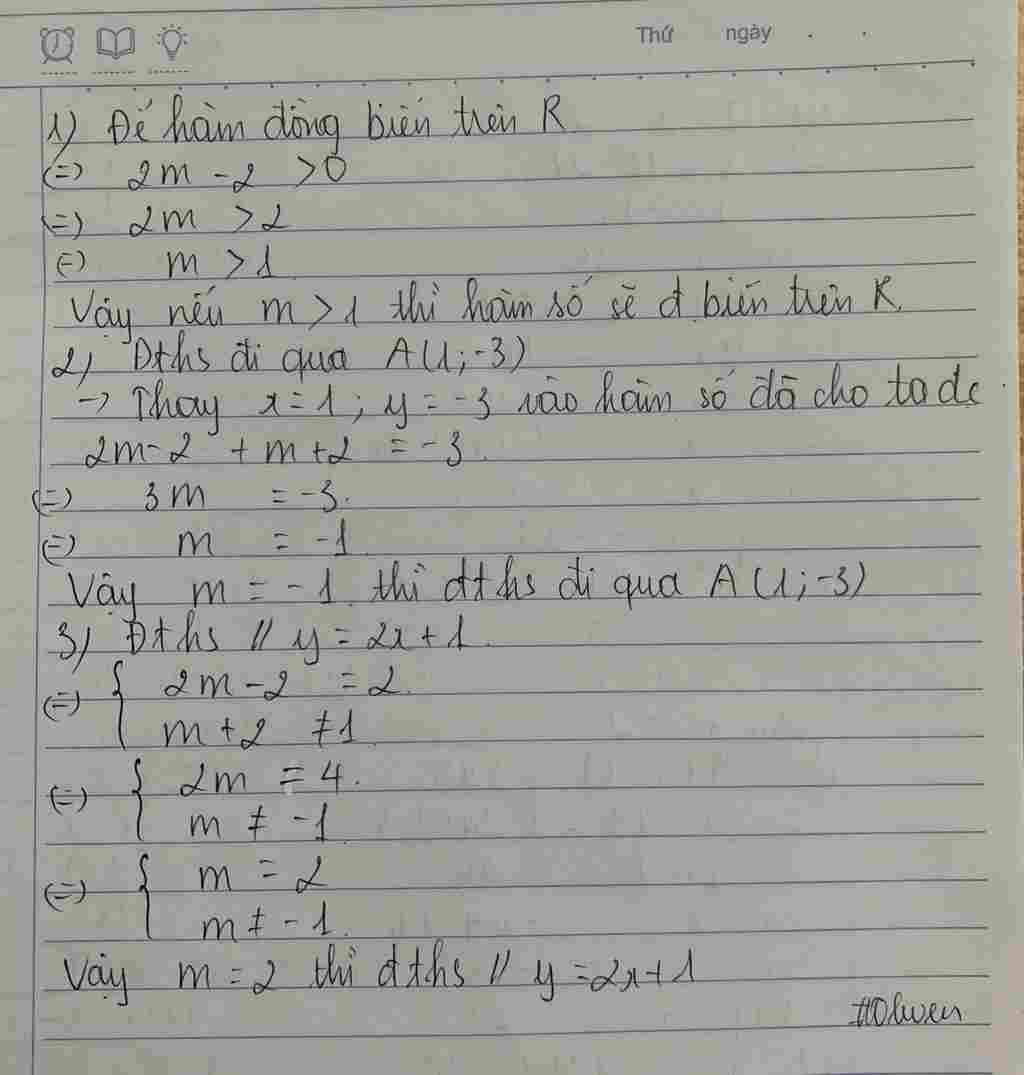 Thứ ngày . .
1) Để hàm đồng biến trên R
(=) 2m - 2 > 0
(=) 2m > 2
(=) m > 1
Vậy nếu m > 1 thì hàm số sẽ đ biến trên R.
2) Đths đi qua A(1;-3)
→ Thay x = 1 ; y = -3 vào hàm số đã cho ta đc
2m - 2 + m + 2 = -3.
(=) 3m = -3.
(=) m = -1
Vậy m = -1 thì đths đi qua A(1;-3)
3) Đths // y = 2x + 1.
(=) { 2m - 2 = 2.
m + 2 ≠ 1
(=) { 2m = 4.
m ≠ -1
(=) { m = 2
m ≠ -1.
Vậy m = 2 thì đths // y = 2x + 1
#Olwen